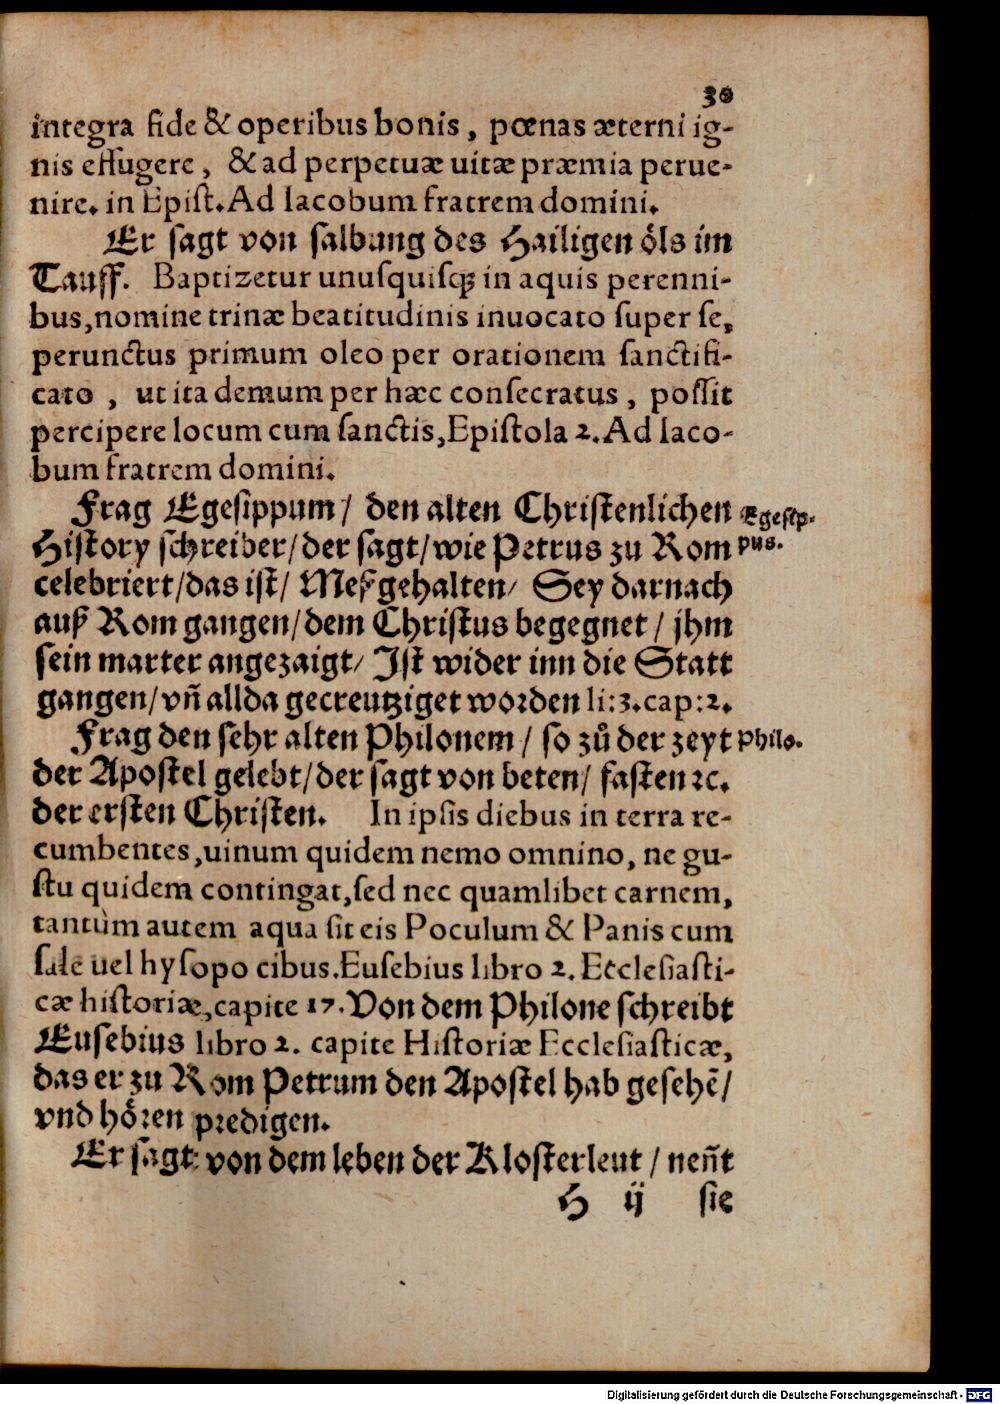 30
integra fide & operibus bonis, pœnas æterni ig-
nis effugere, & ad perpetuæ uitæ præmia perue-
nire. in Epist. Ad Iacobum fratrem domini.
Er sagt von salbung des Hailigen öls im
Tauff. Baptizetur unusquisq; in aquis perenni-
bus, nomine trinæ beatitudinis inuocato super se,
perunctus primum oleo per orationem sanctifi-
cato, ut ita demum per hæc consecratus, possit
percipere locum cum sanctis, Epistola 2. Ad Iaco-
bum fratrem domini.
Frag Egesippum / den alten Christenlichen Egesip-
History schreiber / der sagt / wie Petrus zu Rom pus.
celebriert / das ist / Meß gehalten / Sey darnach
auß Rom gangen / dem Christus begegnet / jhm
sein marter angezaigt / Ist wider inn die Statt
gangen / vñ allda gecreutziget worden li: 3. cap: 2.
Frag den sehr alten Philonem / so zů der zeyt Philo.
der Apostel gelebt / der sagt von beten / fasten ꝛc.
der ersten Christen. In ipsis diebus in terra re-
cumbentes, uinum quidem nemo omnino, ne gu-
stu quidem contingat, sed nec quamlibet carnem,
tantùm autem aqua sit eis Poculum & Panis cum
sale uel hysopo cibus. Eusebius libro 2. Ecclesiasti-
cæ historiæ, capite 17. Von dem Philone schreibt
Eusebius libro 2. capite Historiæ Ecclesiasticæ,
das er zu Rom Petrum den Apostel hab gesehē /
vnd hören predigen.
Er sagt von dem leben der Klosterleut / neñt
H ij sie
Digitalisierung gefördert durch die Deutsche Forschungsgemeinschaft - DFG